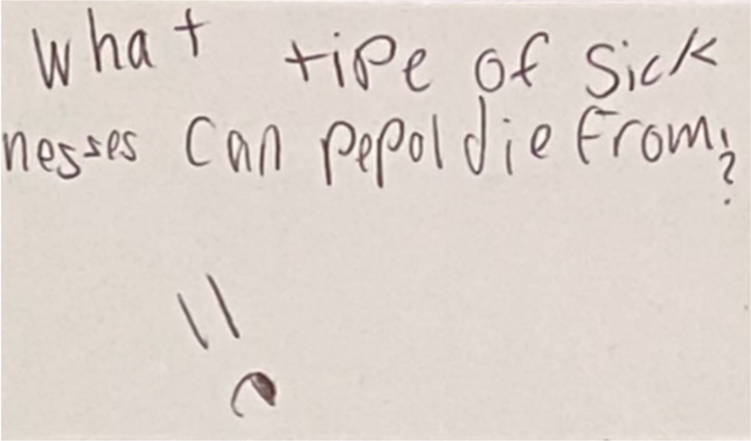 What tipe of sick
nesses can pepol die from?